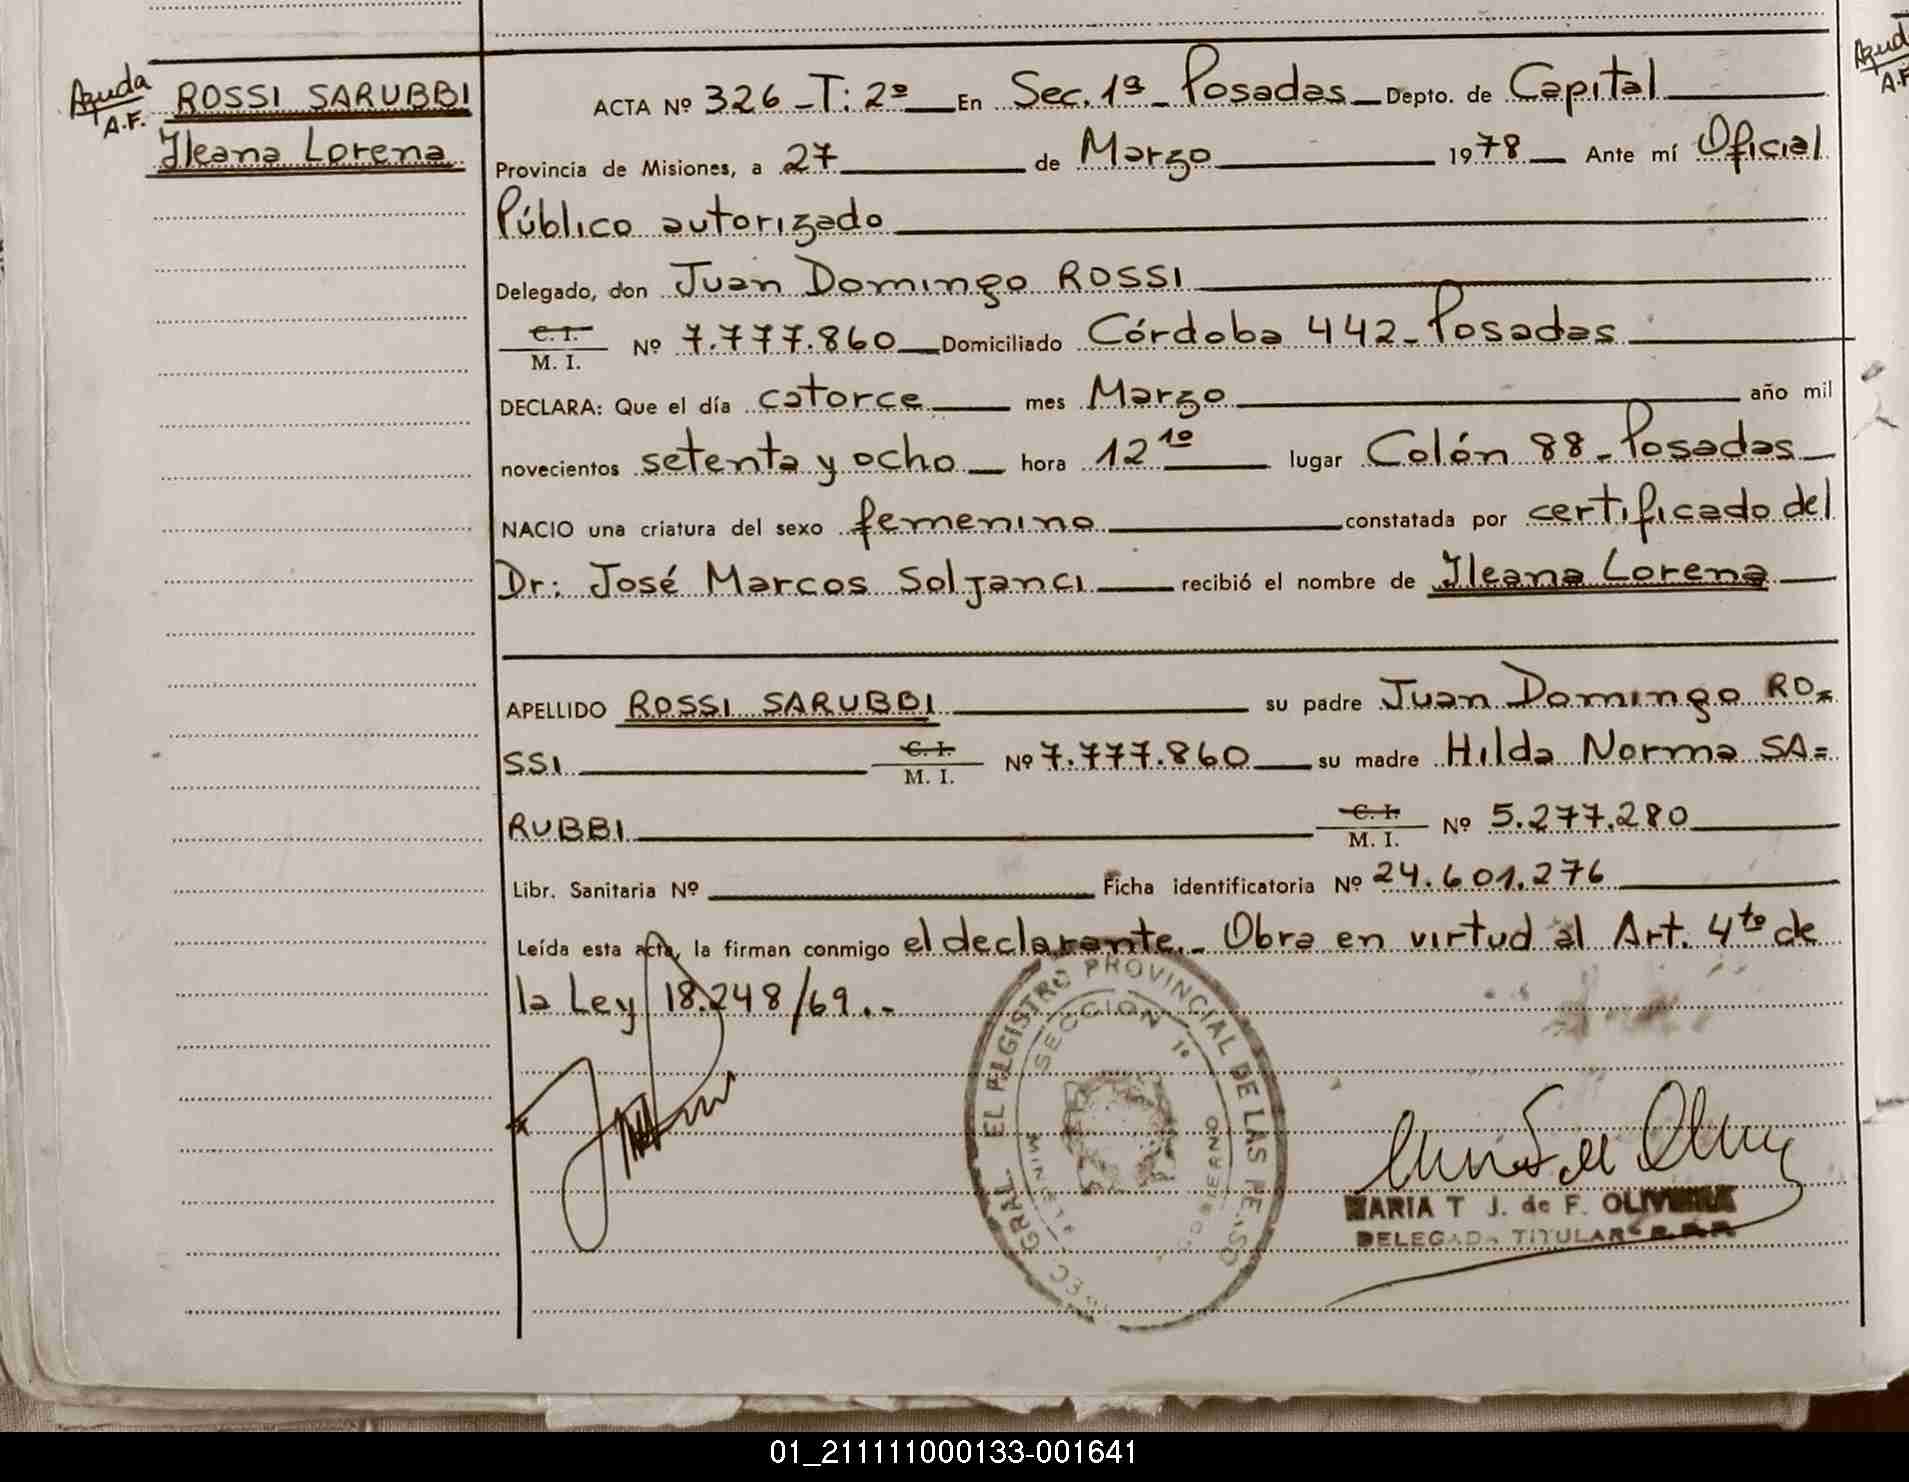 Ayuda
A.F.
ROSSI SARUBBI
Ileana Lorena
ACTA Nº 326 - T: 2º En Sec. 1ª - Posadas Depto. de Capital
Provincia de Misiones, a 27 de Marzo 1978 Ante mí Oficial
Público autorizado
Delegado, don Juan Domingo ROSSI
C. I.
M. I. Nº 7.777.860 Domiciliado Córdoba 442 - Posadas
DECLARA: Que el día catorce mes Marzo año mil
novecientos setenta y ocho hora 12 10 lugar Colón 88 - Posadas
NACIO una criatura del sexo femenino constatada por certificado del
Dr: José Marcos Soljanci recibió el nombre de Ileana Lorena
APELLIDO ROSSI SARUBBI su padre Juan Domingo RO=
SSI C. I. M. I. Nº 7.777.860 su madre Hilda Norma SA=
RUBBI C. I. M. I. Nº 5.277.280
Libr. Sanitaria Nº Ficha identificatoria Nº 24.601.276
Leída esta acta, la firman conmigo el declarante.- Obra en virtud al Art. 4to de
la Ley 18.248/69.-
REGISTRO PROVINCIAL DE LAS PERSO
SECCION 1º
GOBIERNO
MARIA T J. de F. OLIVEIRA
DELEGADA TITULAR R.P.P.
Ayud
A.F
01_211111000133-001641